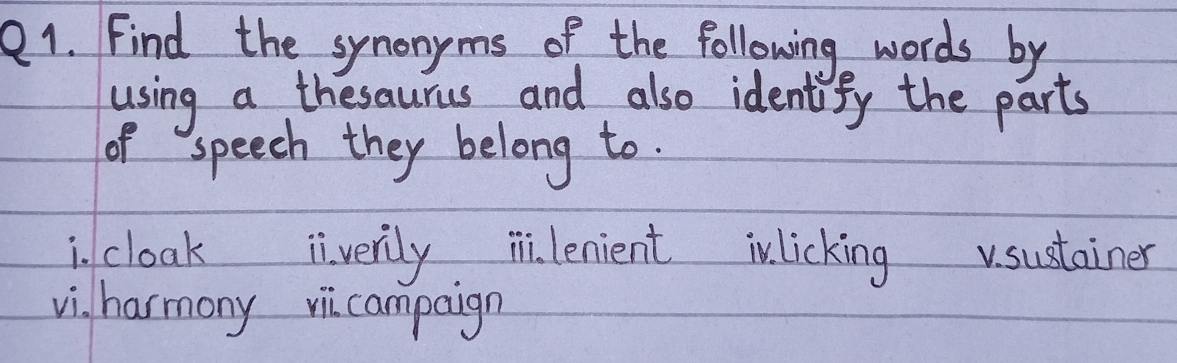 Q1. Find the synonyms of the following words by
using a thesaurus and also identify the parts
of speech they belong to.
i. cloak ii. verily iii. lenient iv. licking v. sustainer
vi. harmony vii. campaign